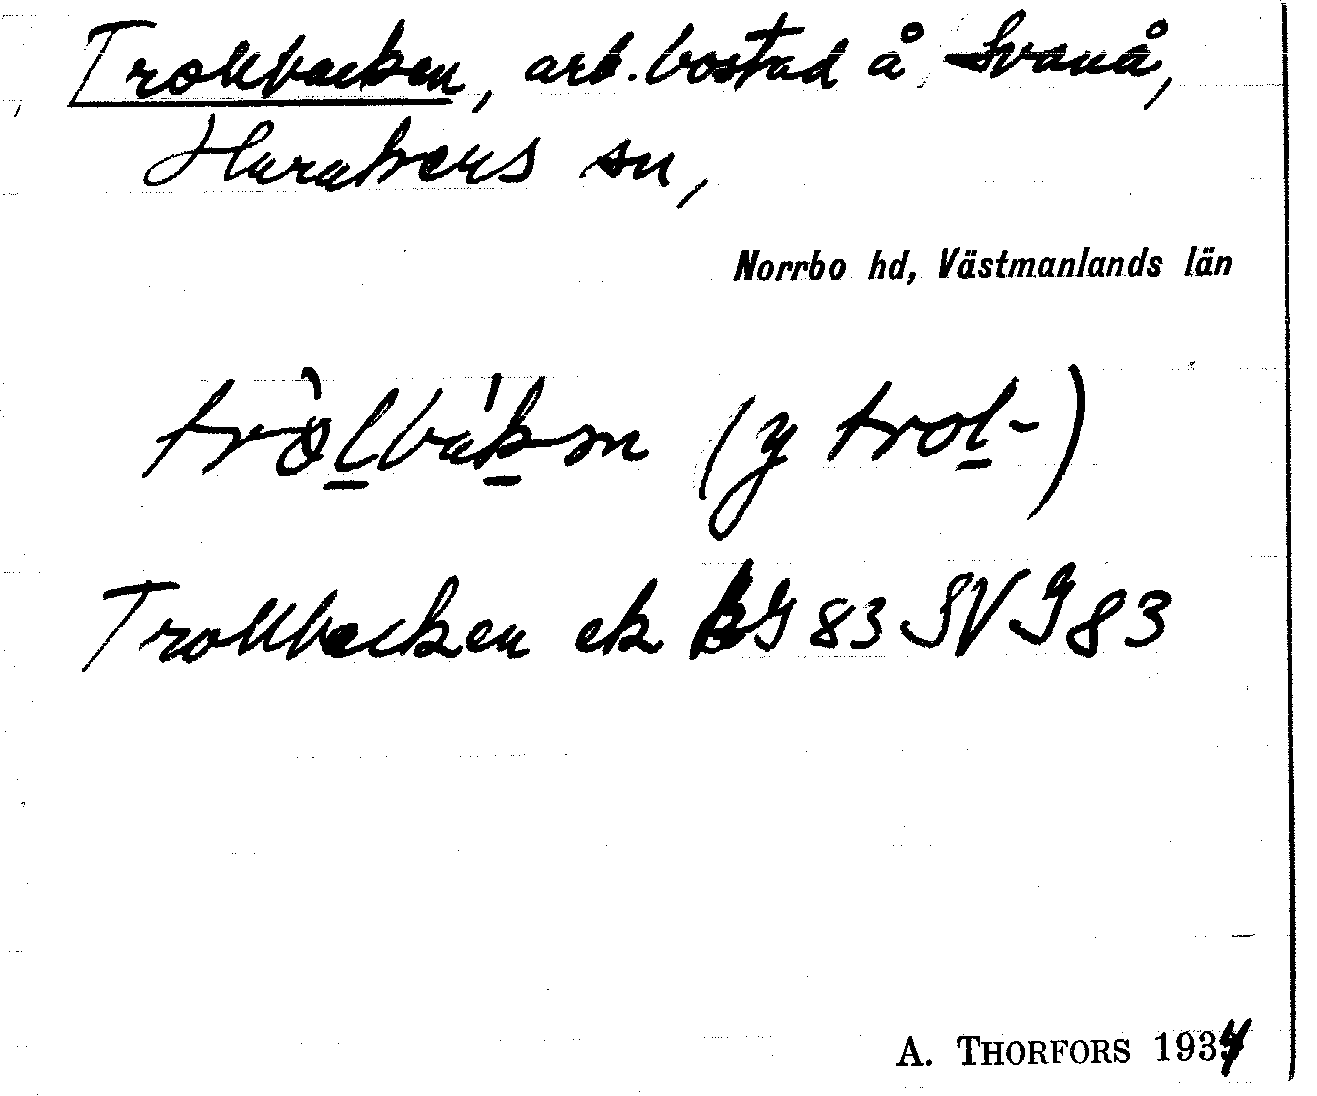 Trollbacken, arb.bostad å Svanå,
Harakers sn,
Norrbo hd, Västmanlands län
tròlbákən (y trol-)
Trollbacken ek BG 83 SV J 83
A. THORFORS 1934